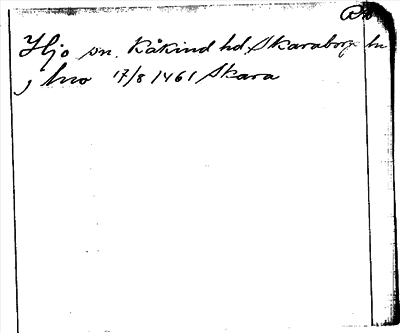 Hjo sn. Kåkind hd, Skaraborgs ln
J hwo 17/8 1461 Skara